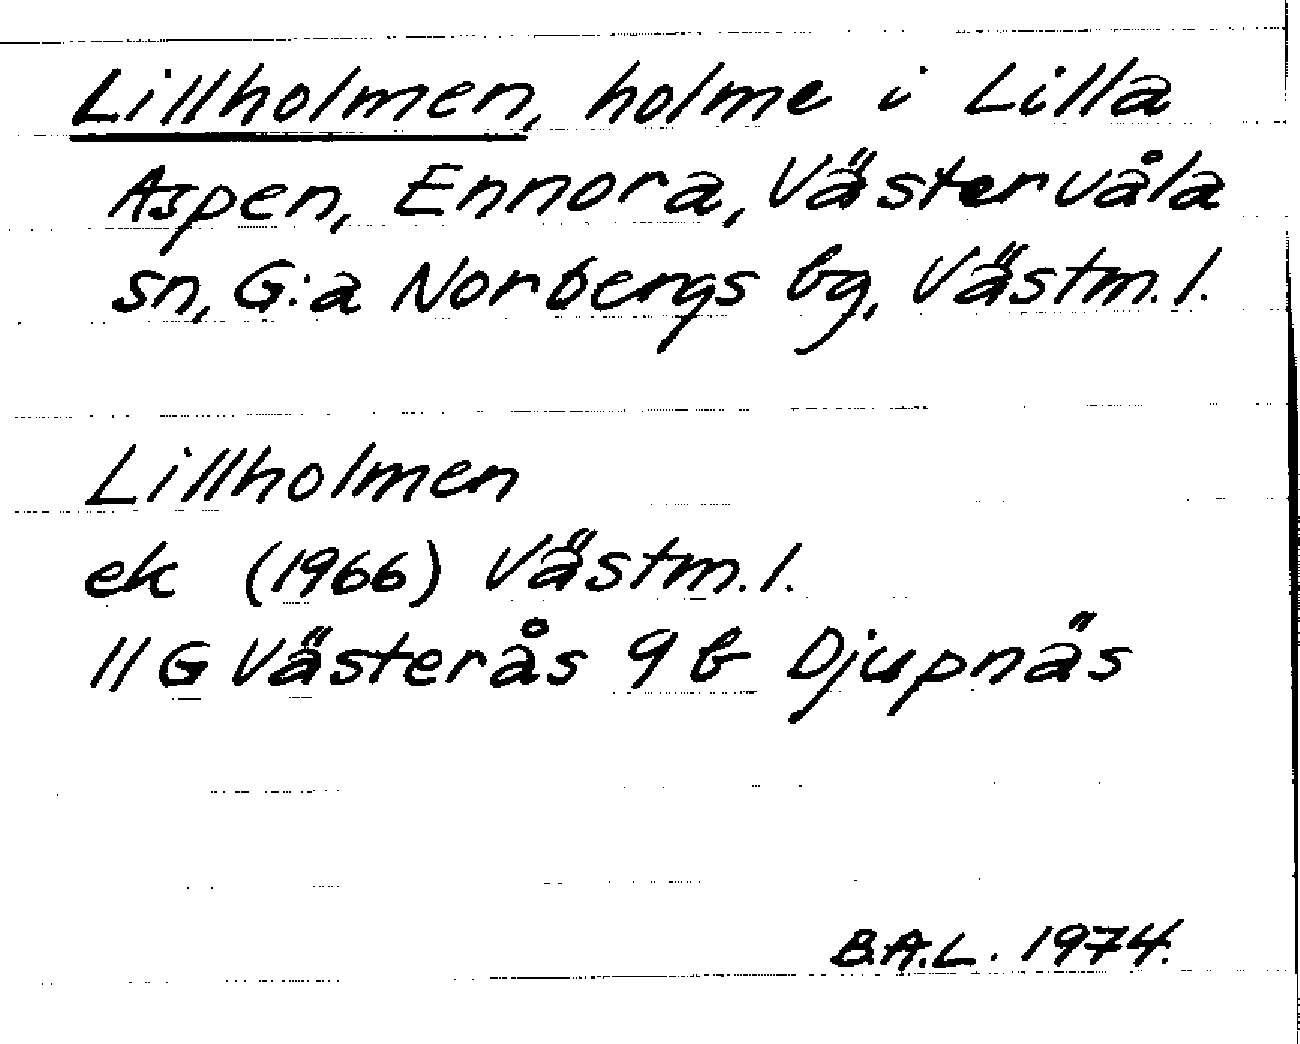 Lillholmen, holme i Lilla
Aspen, Ennora, Västervåla
sn, G:a Norbergs bg, Västm.l.
Lillholmen
ek (1966) Västm.l.
11G Västerås 9b Djupnäs
B.A.L. 1974.